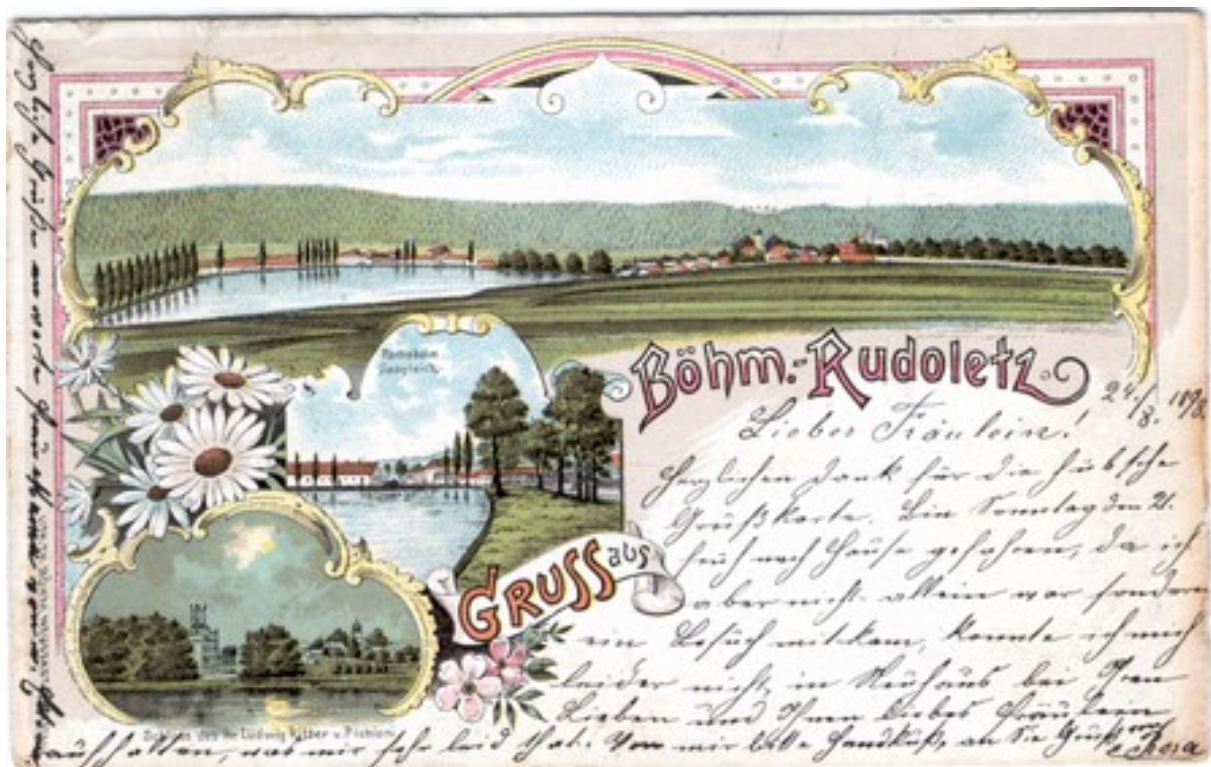 Böhm.-Rudoletz
Gruss aus
24./8. 1898
Liebes Fräulein!
Herzlichen Dank für die hübsche
Grußkarte. Bin Sonntag den 21.
früh nach Hause gefahren, da ich
aber nicht allein war sondern
ein Besuch mitkam, konnte ich mich
leider nicht in Neuhaus bei Ihren
Lieben und Ihnen liebes Fräulein
aufhalten, was mir sehr leid that. Von mir bitte Handkuß, an Sie Gruß von
Rosa
Schloss des Hr Ludwig Ritter v. Pichioni